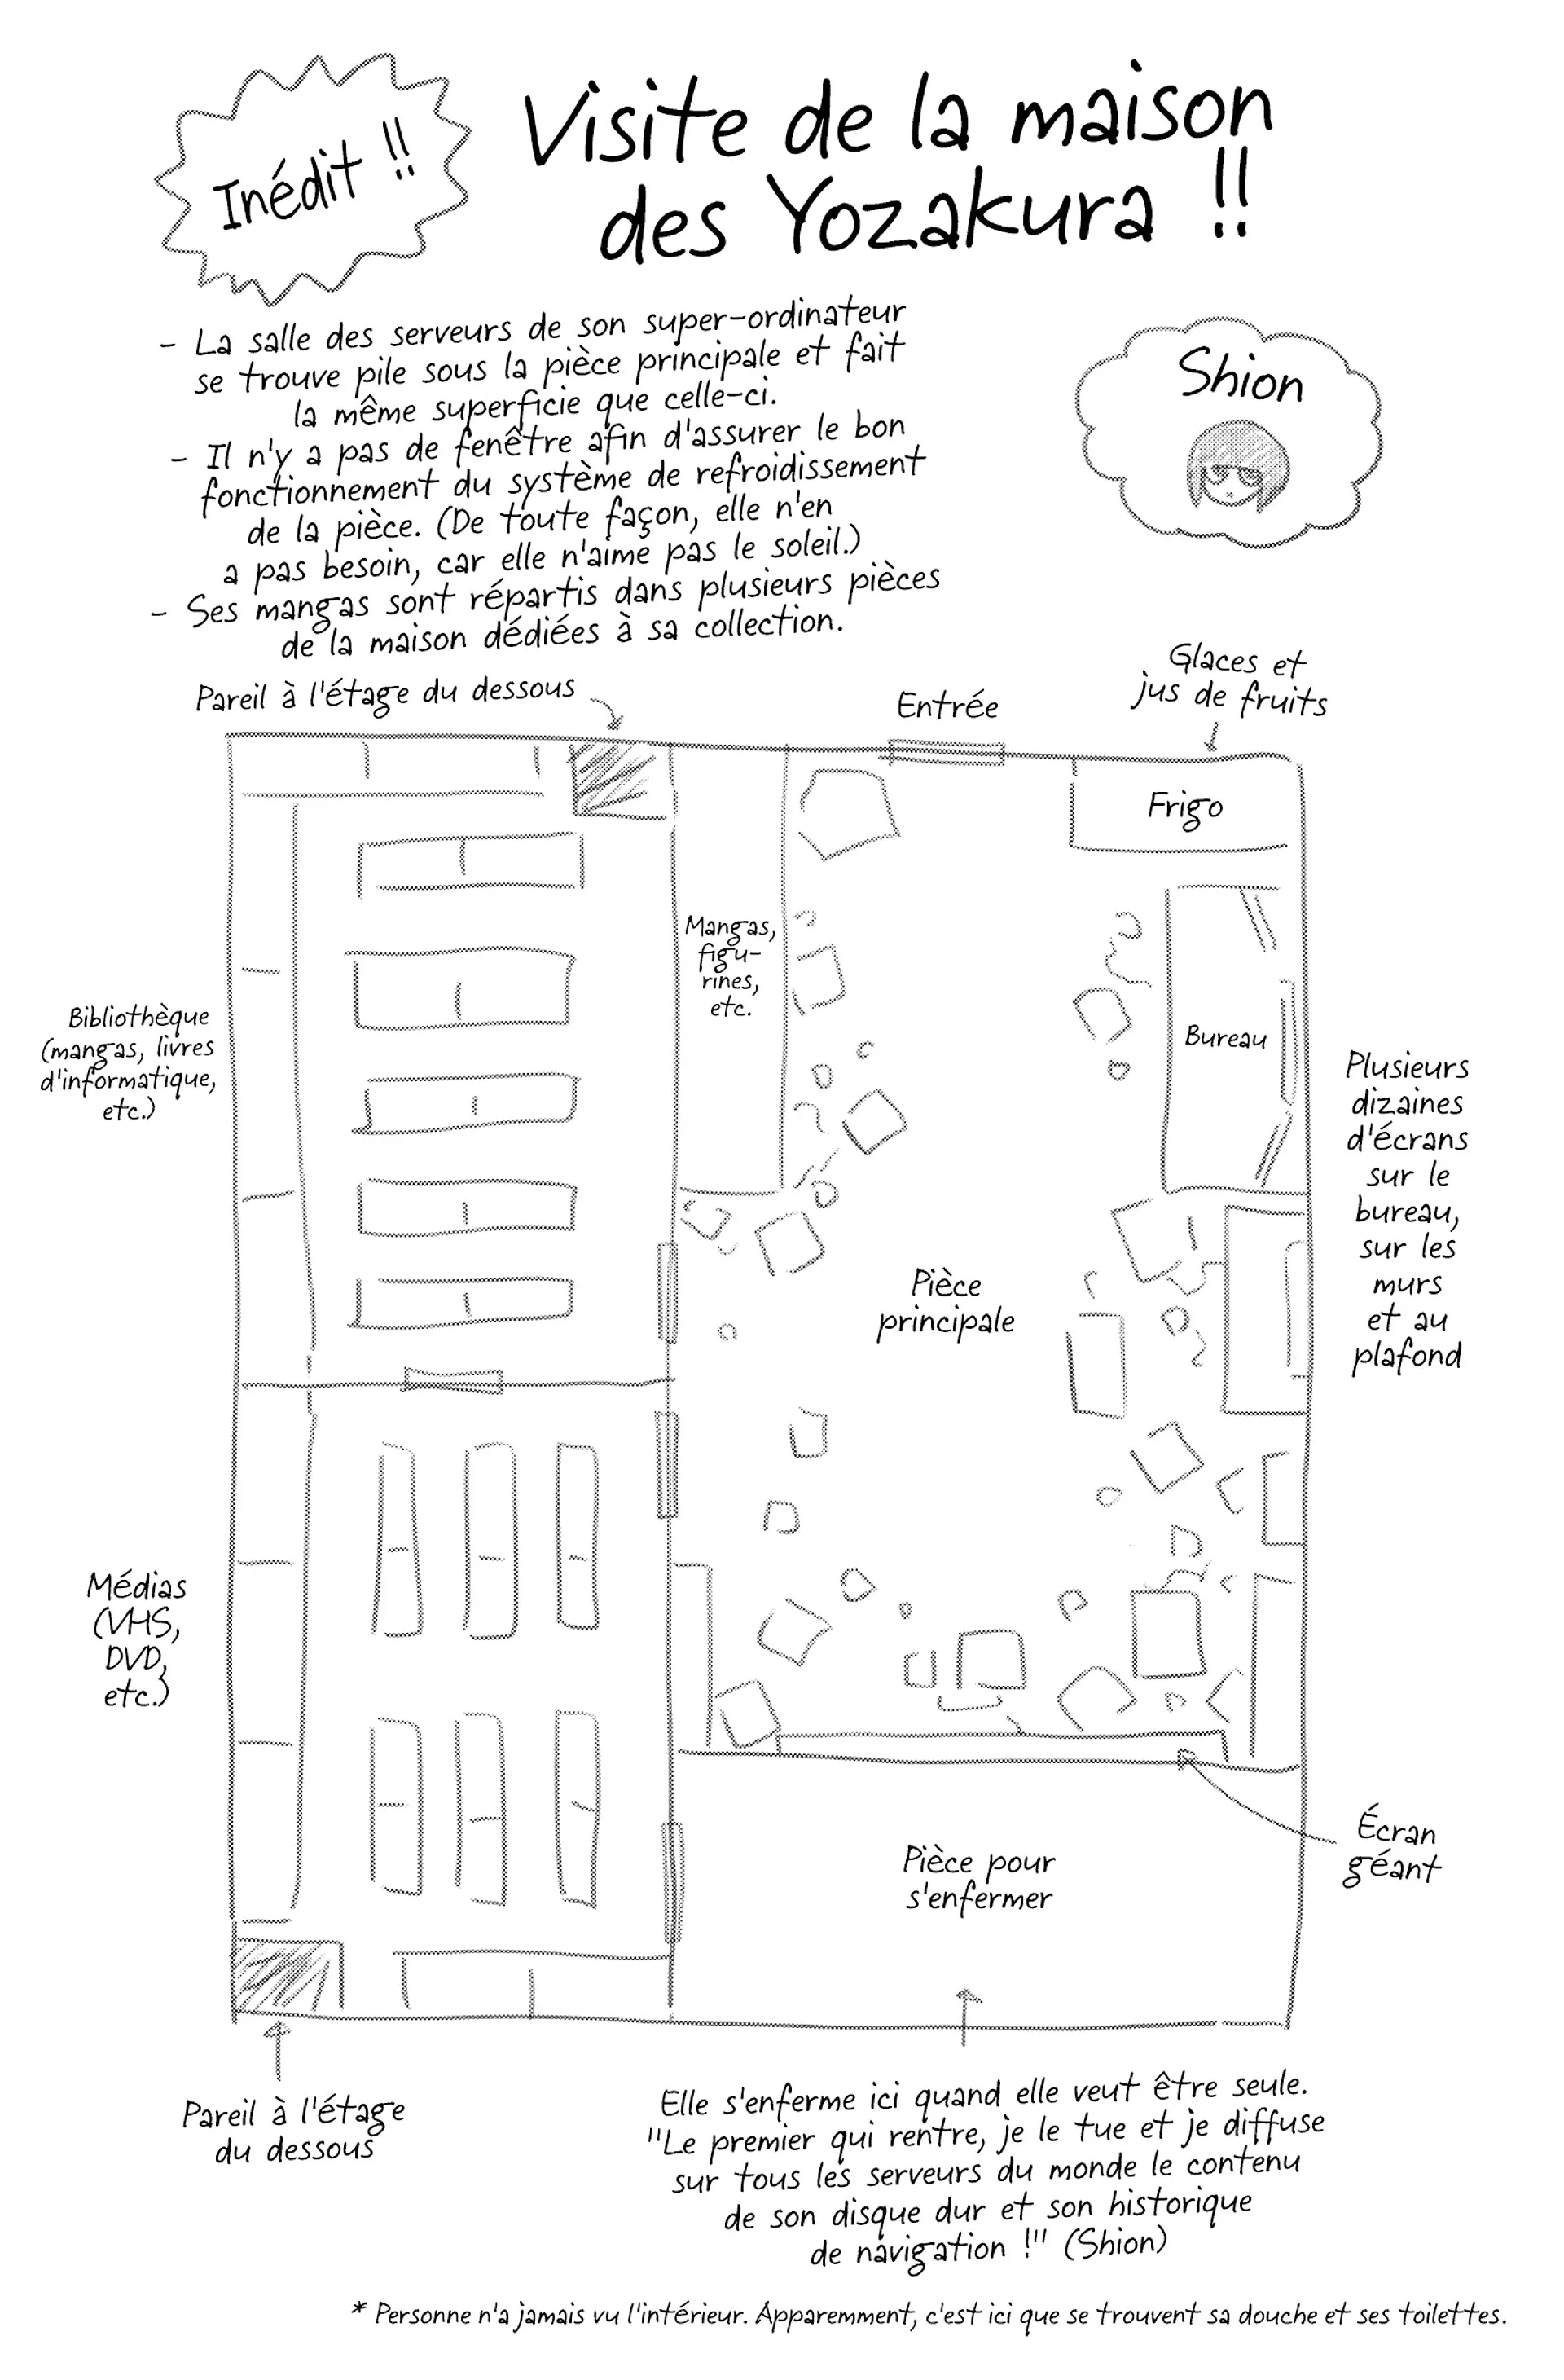 Inédit !!
Visite de la maison
des Yozakura !!
- La salle des serveurs de son super-ordinateur
se trouve pile sous la pièce principale et fait
la même superficie que celle-ci.
- Il n'y a pas de fenêtre afin d'assurer le bon
fonctionnement du système de refroidissement
de la pièce. (De toute façon, elle n'en
a pas besoin, car elle n'aime pas le soleil.)
- Ses mangas sont répartis dans plusieurs pièces
de la maison dédiées à sa collection.
Shion
Pareil à l'étage du dessous
Entrée
Glaces et
jus de fruits
Frigo
Mangas,
figu-
rines,
etc.
Bureau
Bibliothèque
(mangas, livres
d'informatique,
etc.)
Plusieurs
dizaines
d'écrans
sur le
bureau,
sur les
murs
et au
plafond
Pièce
principale
Médias
(VHS,
DVD,
etc.)
Écran
géant
Pièce pour
s'enfermer
Pareil à l'étage
du dessous
Elle s'enferme ici quand elle veut être seule.
"Le premier qui rentre, je le tue et je diffuse
sur tous les serveurs du monde le contenu
de son disque dur et son historique
de navigation !" (Shion)
* Personne n'a jamais vu l'intérieur. Apparemment, c'est ici que se trouvent sa douche et ses toilettes.